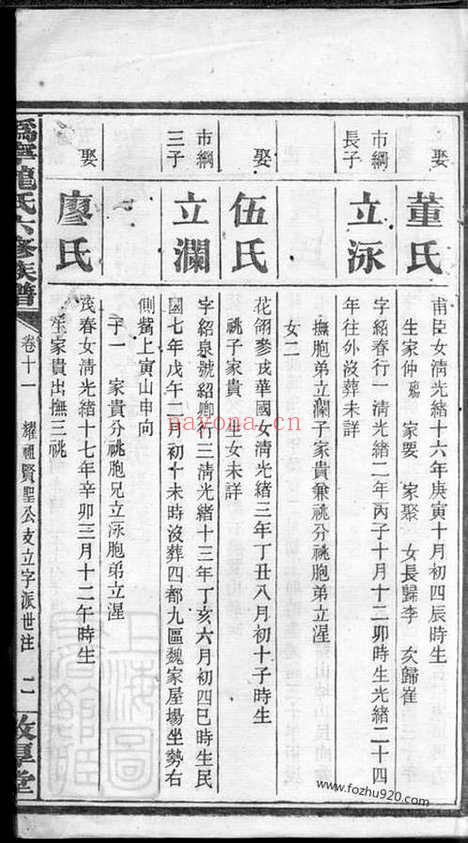 娶
董氏
甫臣女清光緒十六年庚寅十月初四辰時生
生家仲 殤 家要 家聚 女長歸李 次歸崔
市綱
長子
立泳
字紹春行一清光緒二年丙子十月十二卯時生光緒二十四
年往外沒葬未詳
撫胞弟立瀾子家貴兼祧分祧胞弟立渥
女二
娶
伍氏
花翎參戎華國女清光緒三年丁丑八月初十子時生
祧子家貴 生女未詳
市綱
三子
立瀾
字紹泉號紹卿行三清光緒十三年丁亥六月初四巳時生民
國七年戊午二月初十未時沒葬四都九區魏家屋場坐勢右
側嘴上寅山申向
子一 家貴分祧胞兄立泳胞弟立渥
娶
廖氏
茂春女清光緒十七年辛卯三月十二午時生
生家貴出撫三祧
龍氏六修族譜
卷十一
耀祖賢聖公支立字派世注
二
敦厚堂
nayona.cn
上海圖
www.fozhu920.com